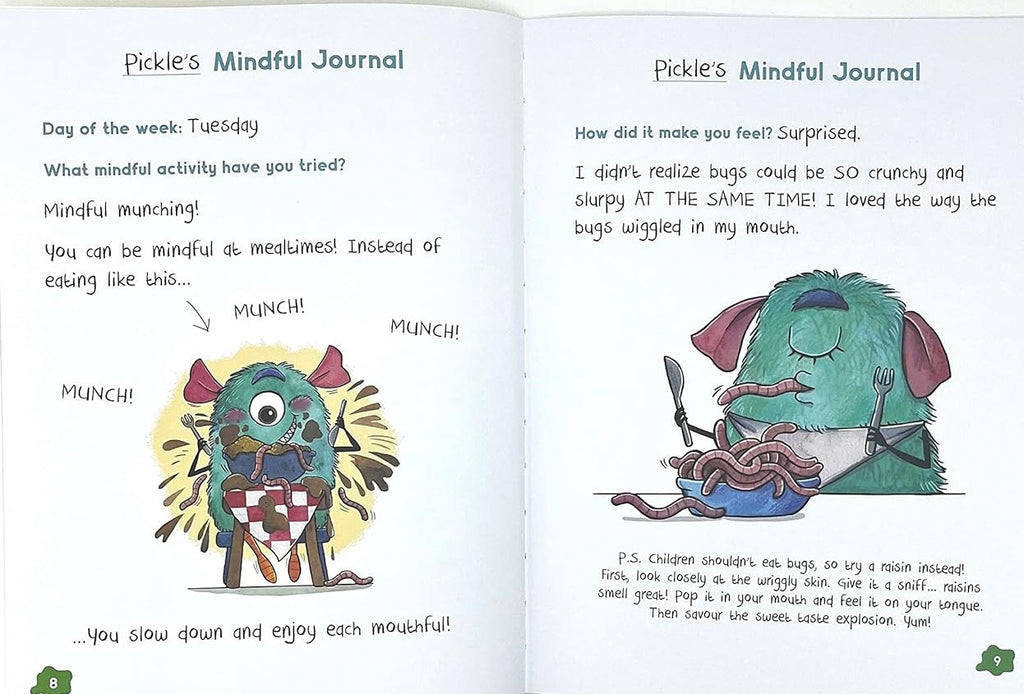 Pickle's Mindful Journal
Day of the week: Tuesday
What mindful activity have you tried?
Mindful munching!
You can be mindful at mealtimes! Instead of
eating like this...
MUNCH!
MUNCH!
MUNCH!
...you slow down and enjoy each mouthful!
8
Pickle's Mindful Journal
How did it make you feel? Surprised.
I didn't realize bugs could be SO crunchy and
slurpy AT THE SAME TIME! I loved the way the
bugs wiggled in my mouth.
P.S. Children shouldn't eat bugs, so try a raisin instead!
First, look closely at the wriggly skin. Give it a sniff... raisins
smell great! Pop it in your mouth and feel it on your tongue.
Then savour the sweet taste explosion. Yum!
9